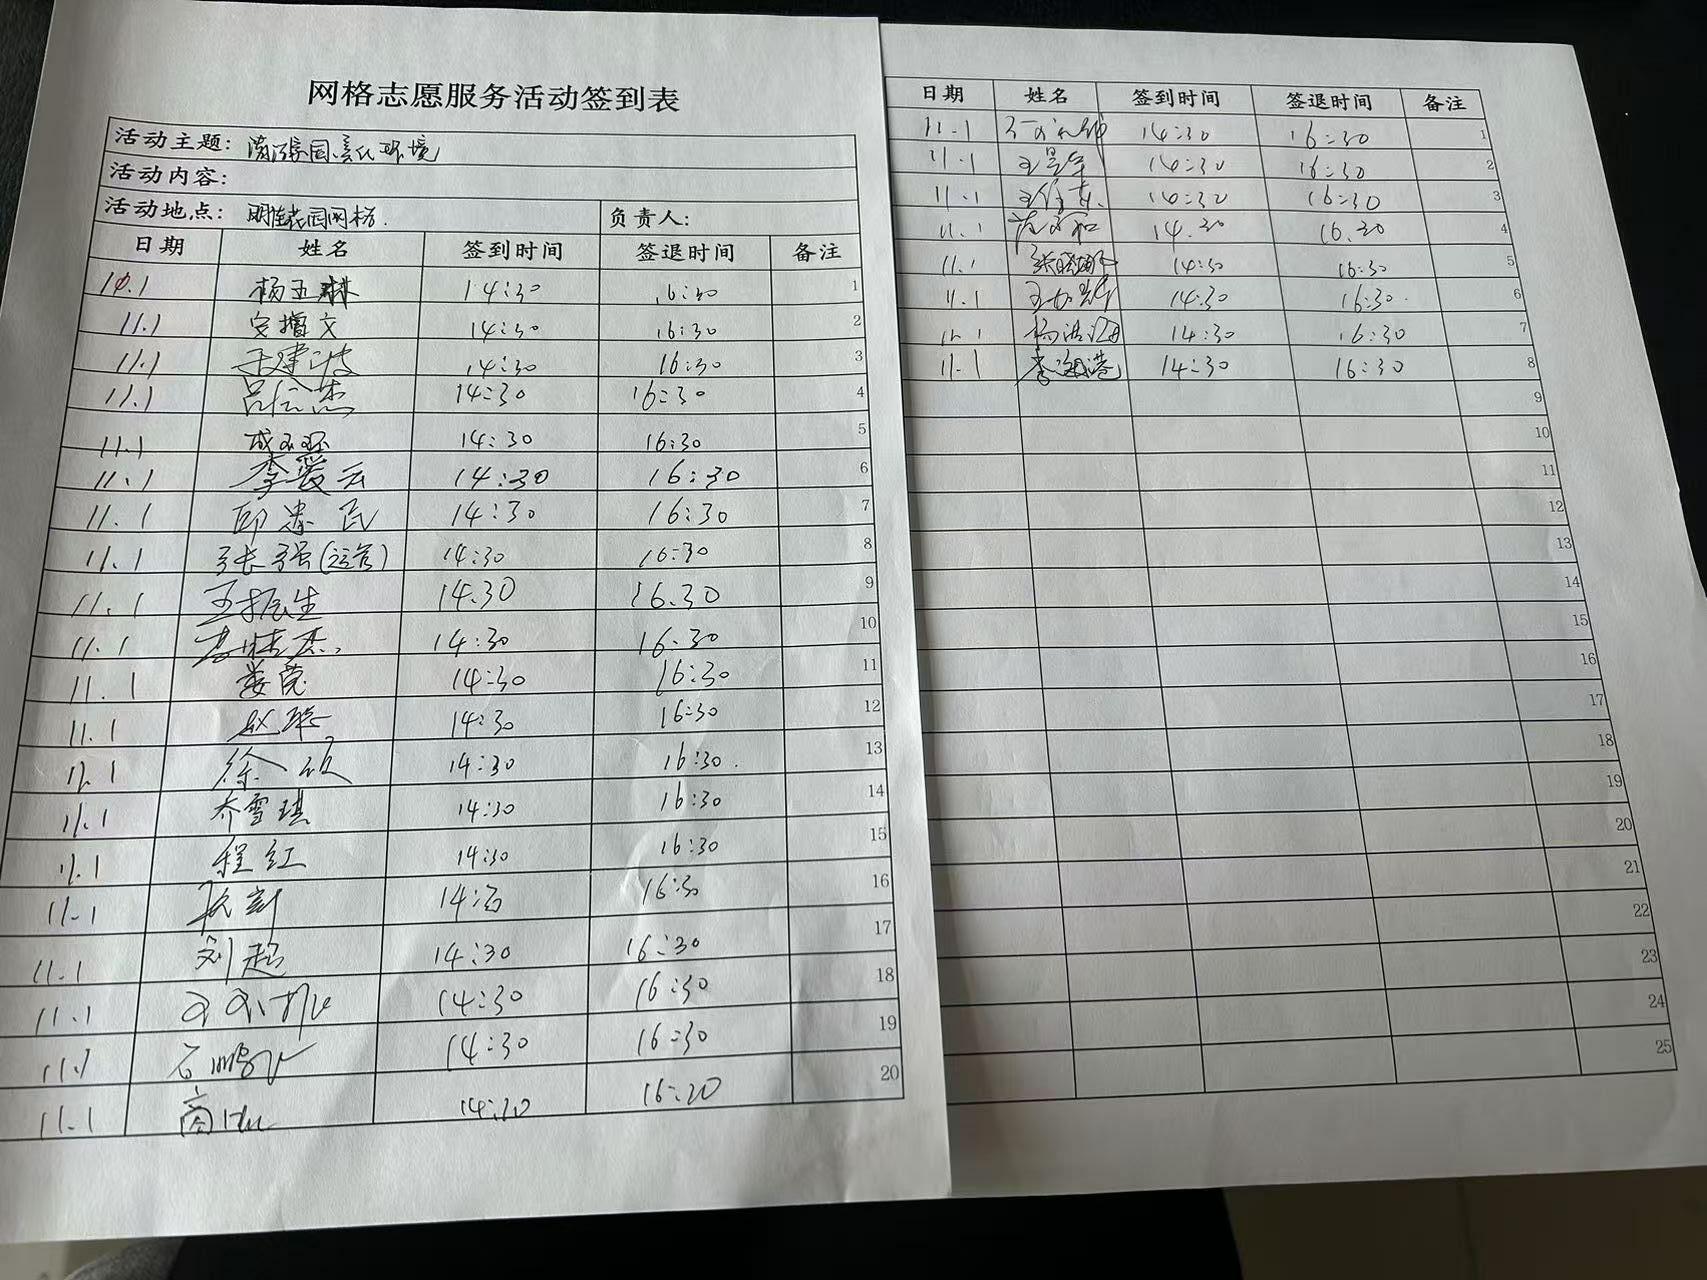 网格志愿服务活动签到表
活动主题: 清洁家园、美化环境
活动内容:
活动地点: 花园网格. 负责人:
日期 姓名 签到时间 签退时间 备注
10.1 杨玉琳 14:30 16:30 1
11.1 安增文 14:30 16:30 2
11.1 于建波 14:30 16:30 3
11.1 吕会杰 14:30 16:30 4
11.1 14:30 16:30 5
11.1 李爱云 14:30 16:30 6
11.1 邱忠民 14:30 16:30 7
11.1 张强(运管) 14:30 16:30 8
11.1 王振生 14.30 16.30 9
11.1 14:30 16.30 10
11.1 娄莞 14:30 16:30 11
11.1 赵 14:30 16:30 12
11.1 徐 14:30 16:30. 13
11.1 乔雪琪 14:30 16:30 14
11.1 程红 14:30 16:30 15
11.1 14:30 16:30 16
11.1 刘超 14:30 16:30 17
11.1 14:30 16:30 18
11.1 石鹏飞 14:30 16:30 19
11.1 商 14:30 16:20 20
日期 姓名 签到时间 签退时间 备注
11.1 14:30 16:30 1
11.1 王 14:30 16:30 2
11.1 王 14:30 16:30 3
11.1 14.30 16.30 4
11.1 张晓娜 14:30 16:30 5
11.1 王 14:30 16:30. 6
11.1 杨浩海 14:30 16:30 7
11.1 李淑港 14:30 16:30 8
9
10
11
12
13
14
15
16
17
18
19
20
21
22
23
24
25